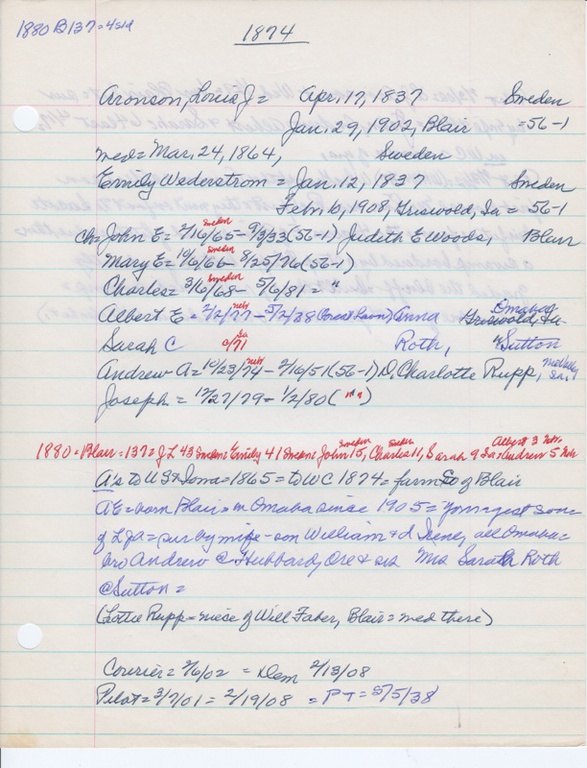 1880 B137=4sid
1874
Aronson, Louis J= Apr. 17, 1837 Sweden
Jan. 29, 1902, Blair =56-1
med= Mar. 24, 1864, Sweden
Emily Wederstrom = Jan. 12, 1837 Sweden
Febr. 16, 1908, Griswold, Ia = 56-1
Sweden
ch= John E= 2/16/65- 9/3/33 (56-1) Judith E Woods, Blair
Sweden
Mary E= 10/6/66- 8/25/76 (56-1)
Sweden
Charles= 3/6/68- 5/6/81 = "
Nebr Omaha
Albert E = 2/2/77 - 5/2/38 (Forest Lawn) Anna Griswold, Ia
Ia
Sarah C a/71 Roth, " Sutton
Nebr
Andrew A= 10/23/74- 2/16/51 (56-1) D. Charlotte Rupp, Mo Valley, Ia.
Joseph = 12/27/79- 1/2/80 ( " " )
Sweden Sweden Albert 3 Nebr
1880=Blair=137= J L 43 Sweden= Emily 41 Sweden= John 15, Charles 11, Sarah 9 Ia= Andrew 5 Nebr
A's to US & Iowa=1865= to WC 1874= farm SO of Blair
AE= born Blair= in Omaha since 1905= youngest son=
of LJA= sur by wife - son William & d Irene, all Omaha=
bro Andrew @ Hubbard, Ore & sis Mrs Sarah Roth
@ Sutton=
(Lottie Rupp= niece of Will Faber, Blair= med there)
Courier= 2/6/02 = Dem 2/13/08
Pilot= 3/7/01 = 2/19/08 = PT= 5/5/38